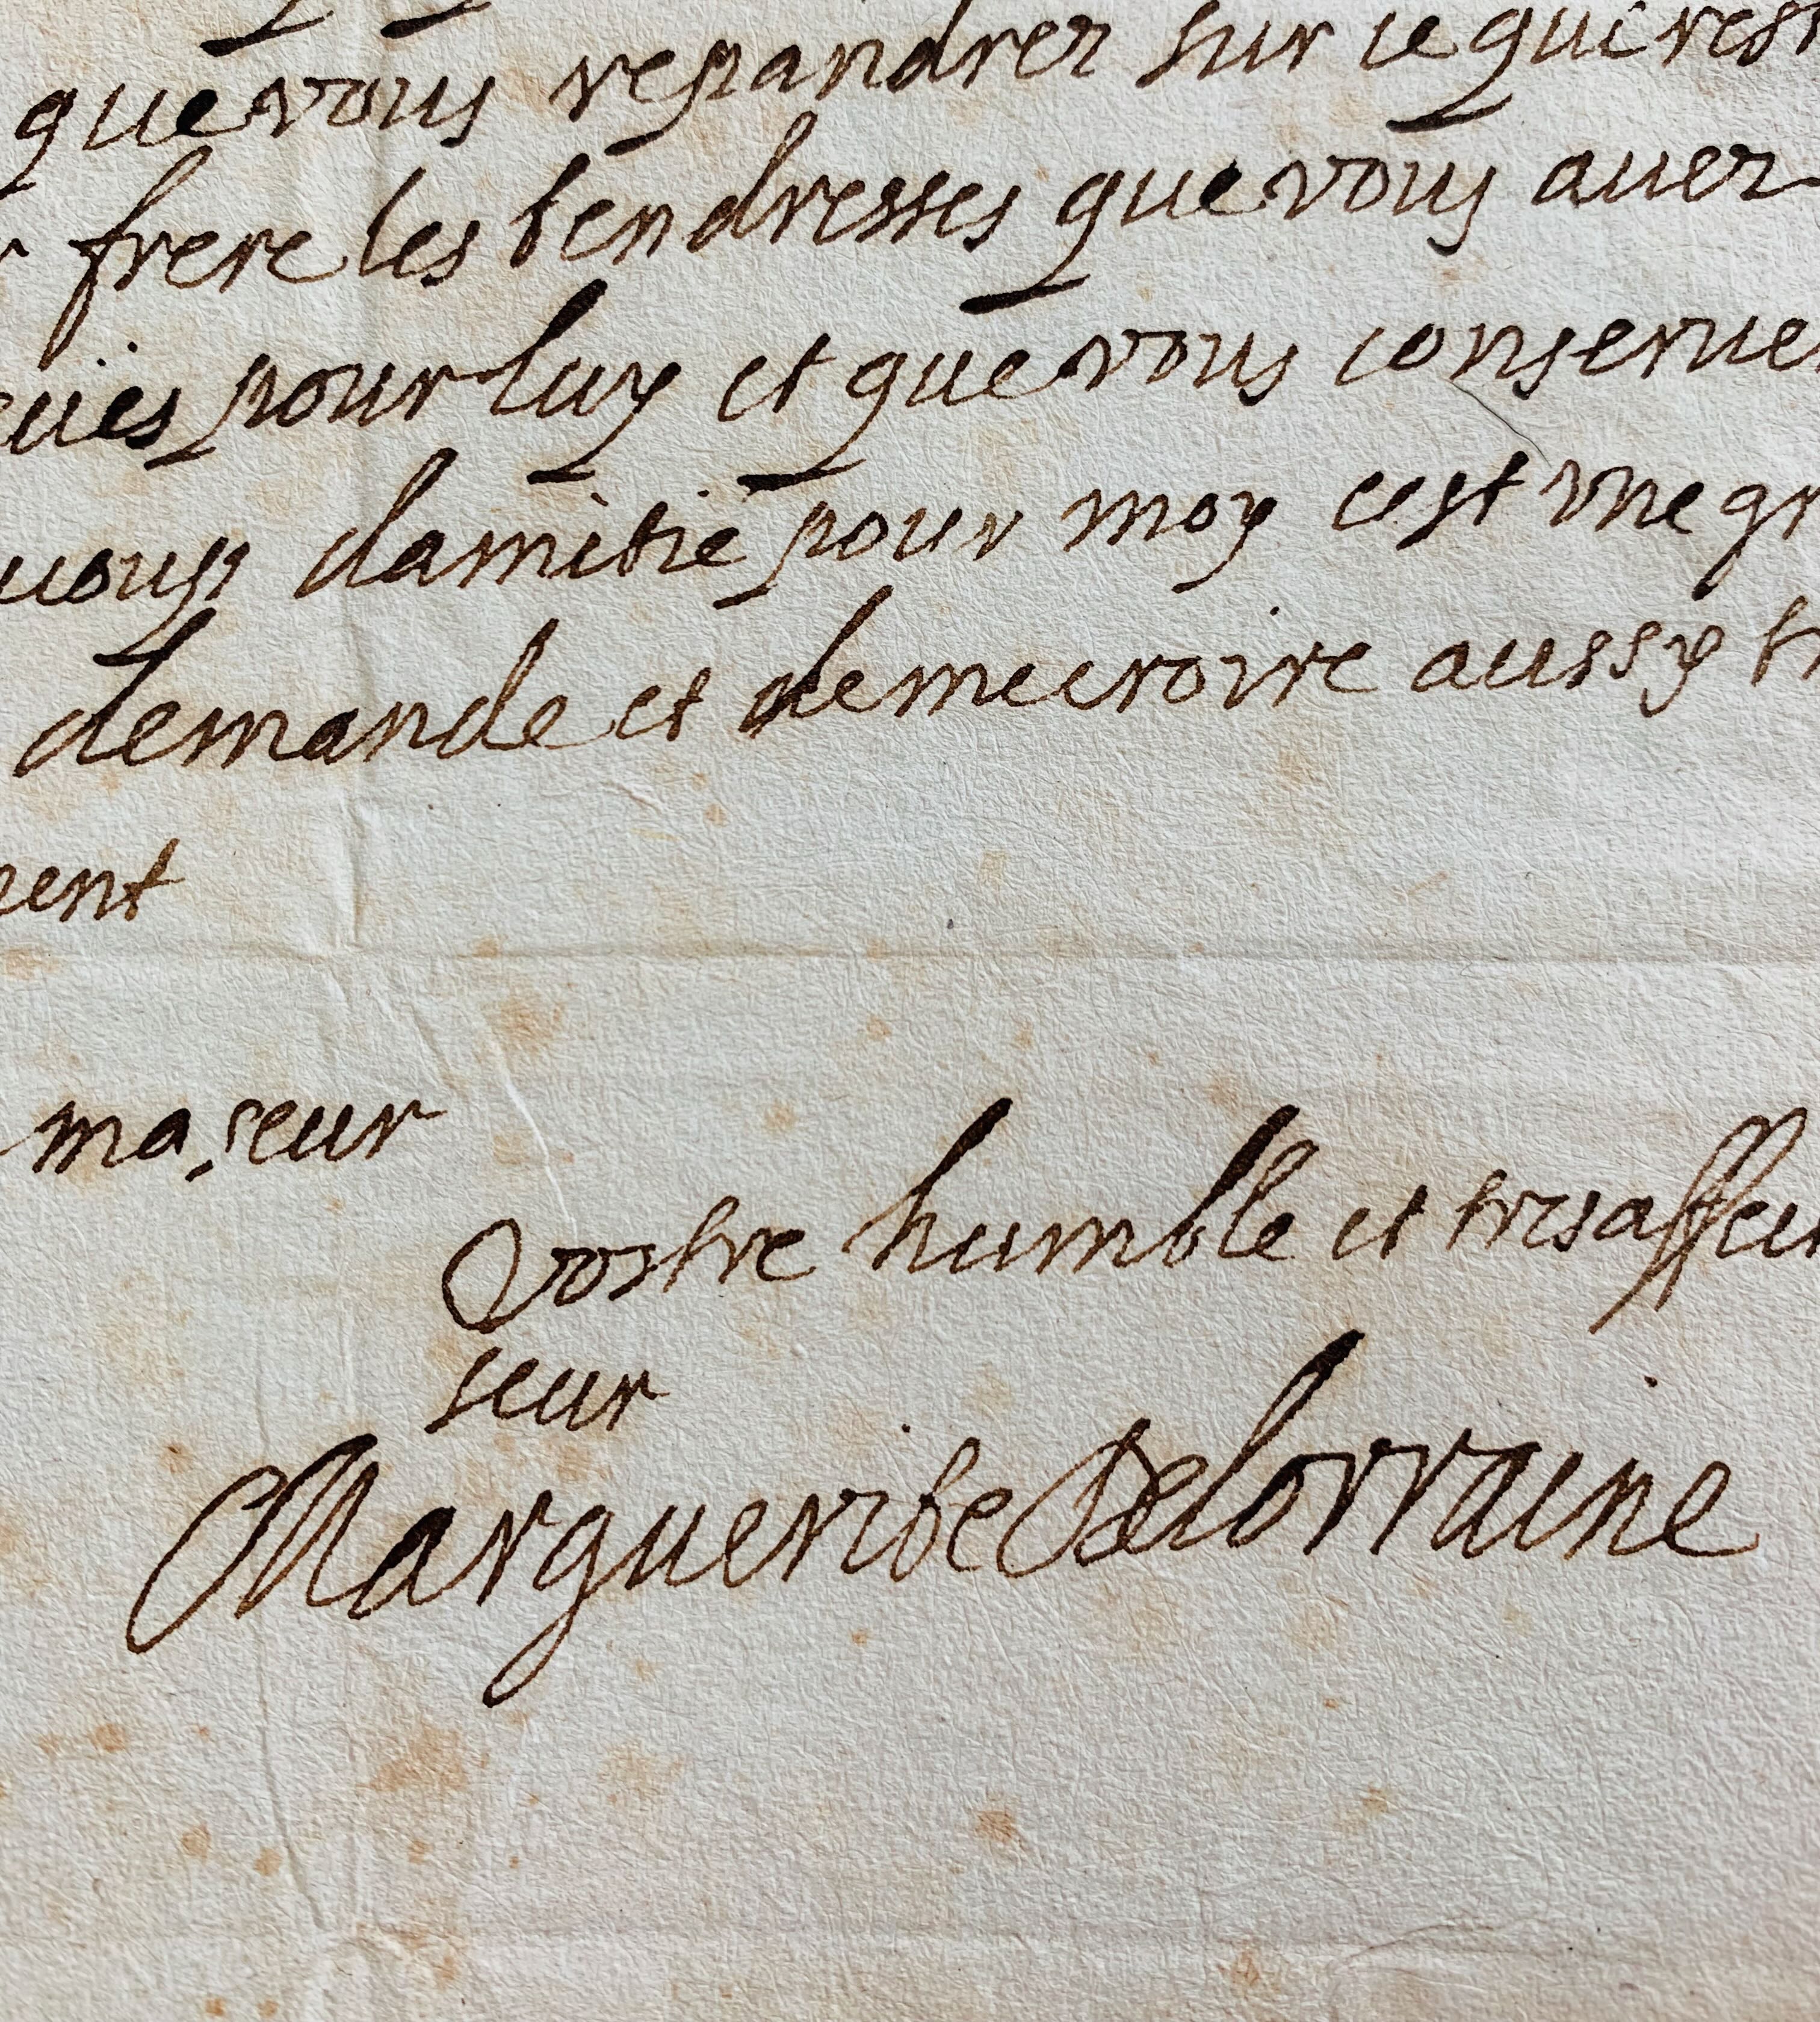 que vous respandrez sur ce qui rest
frere les tendresses que vous auez
euës pour luy et que vous conserue
coup damitié pour moy cest vne gr
demande et de me croire aussy tr
ment
ma seur
Vostre humble et tres affect
seur
Marguerite De lorraine